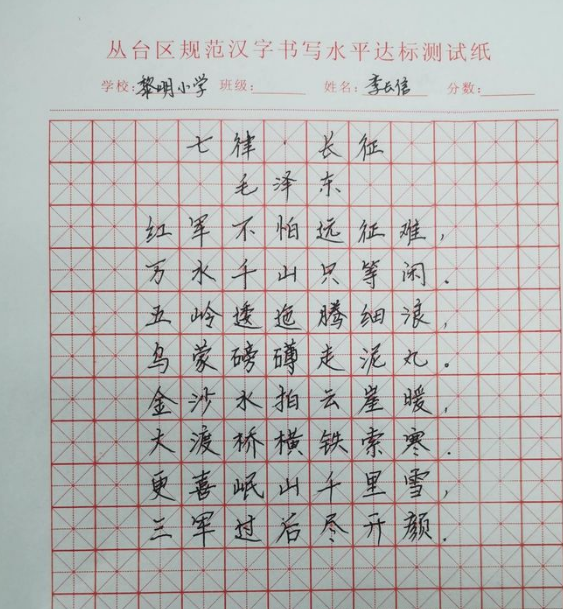 丛台区规范汉字书写水平达标测试纸
学校:黎明小学 班级: 姓名:李长信 分数:
七律·长征
毛泽东
红军不怕远征难,
万水千山只等闲.
五岭逶迤腾细浪,
乌蒙磅礴走泥丸。
金沙水拍云崖暖,
大渡桥横铁索寒.
更喜岷山千里雪,
三军过后尽开颜.